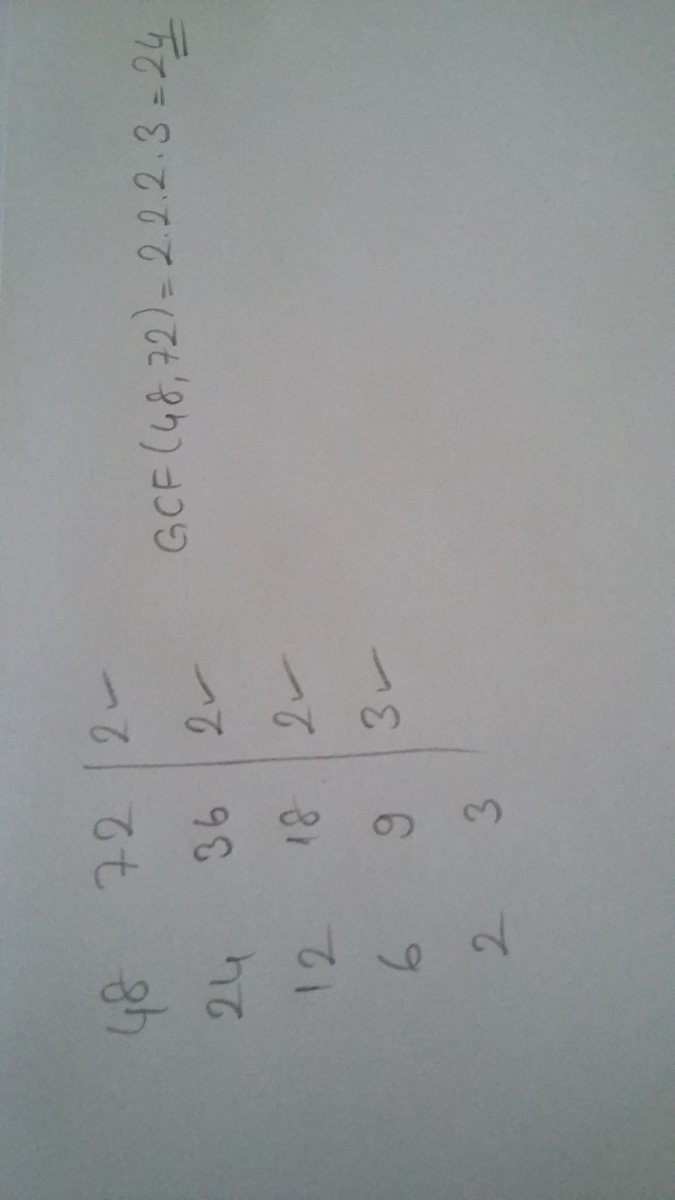 48 72 | 2 ✓
24 36 | 2 ✓ GCF (48, 72) = 2.2.2.3 = 24
12 18 | 2 ✓
6 9 | 3 ✓
2 3